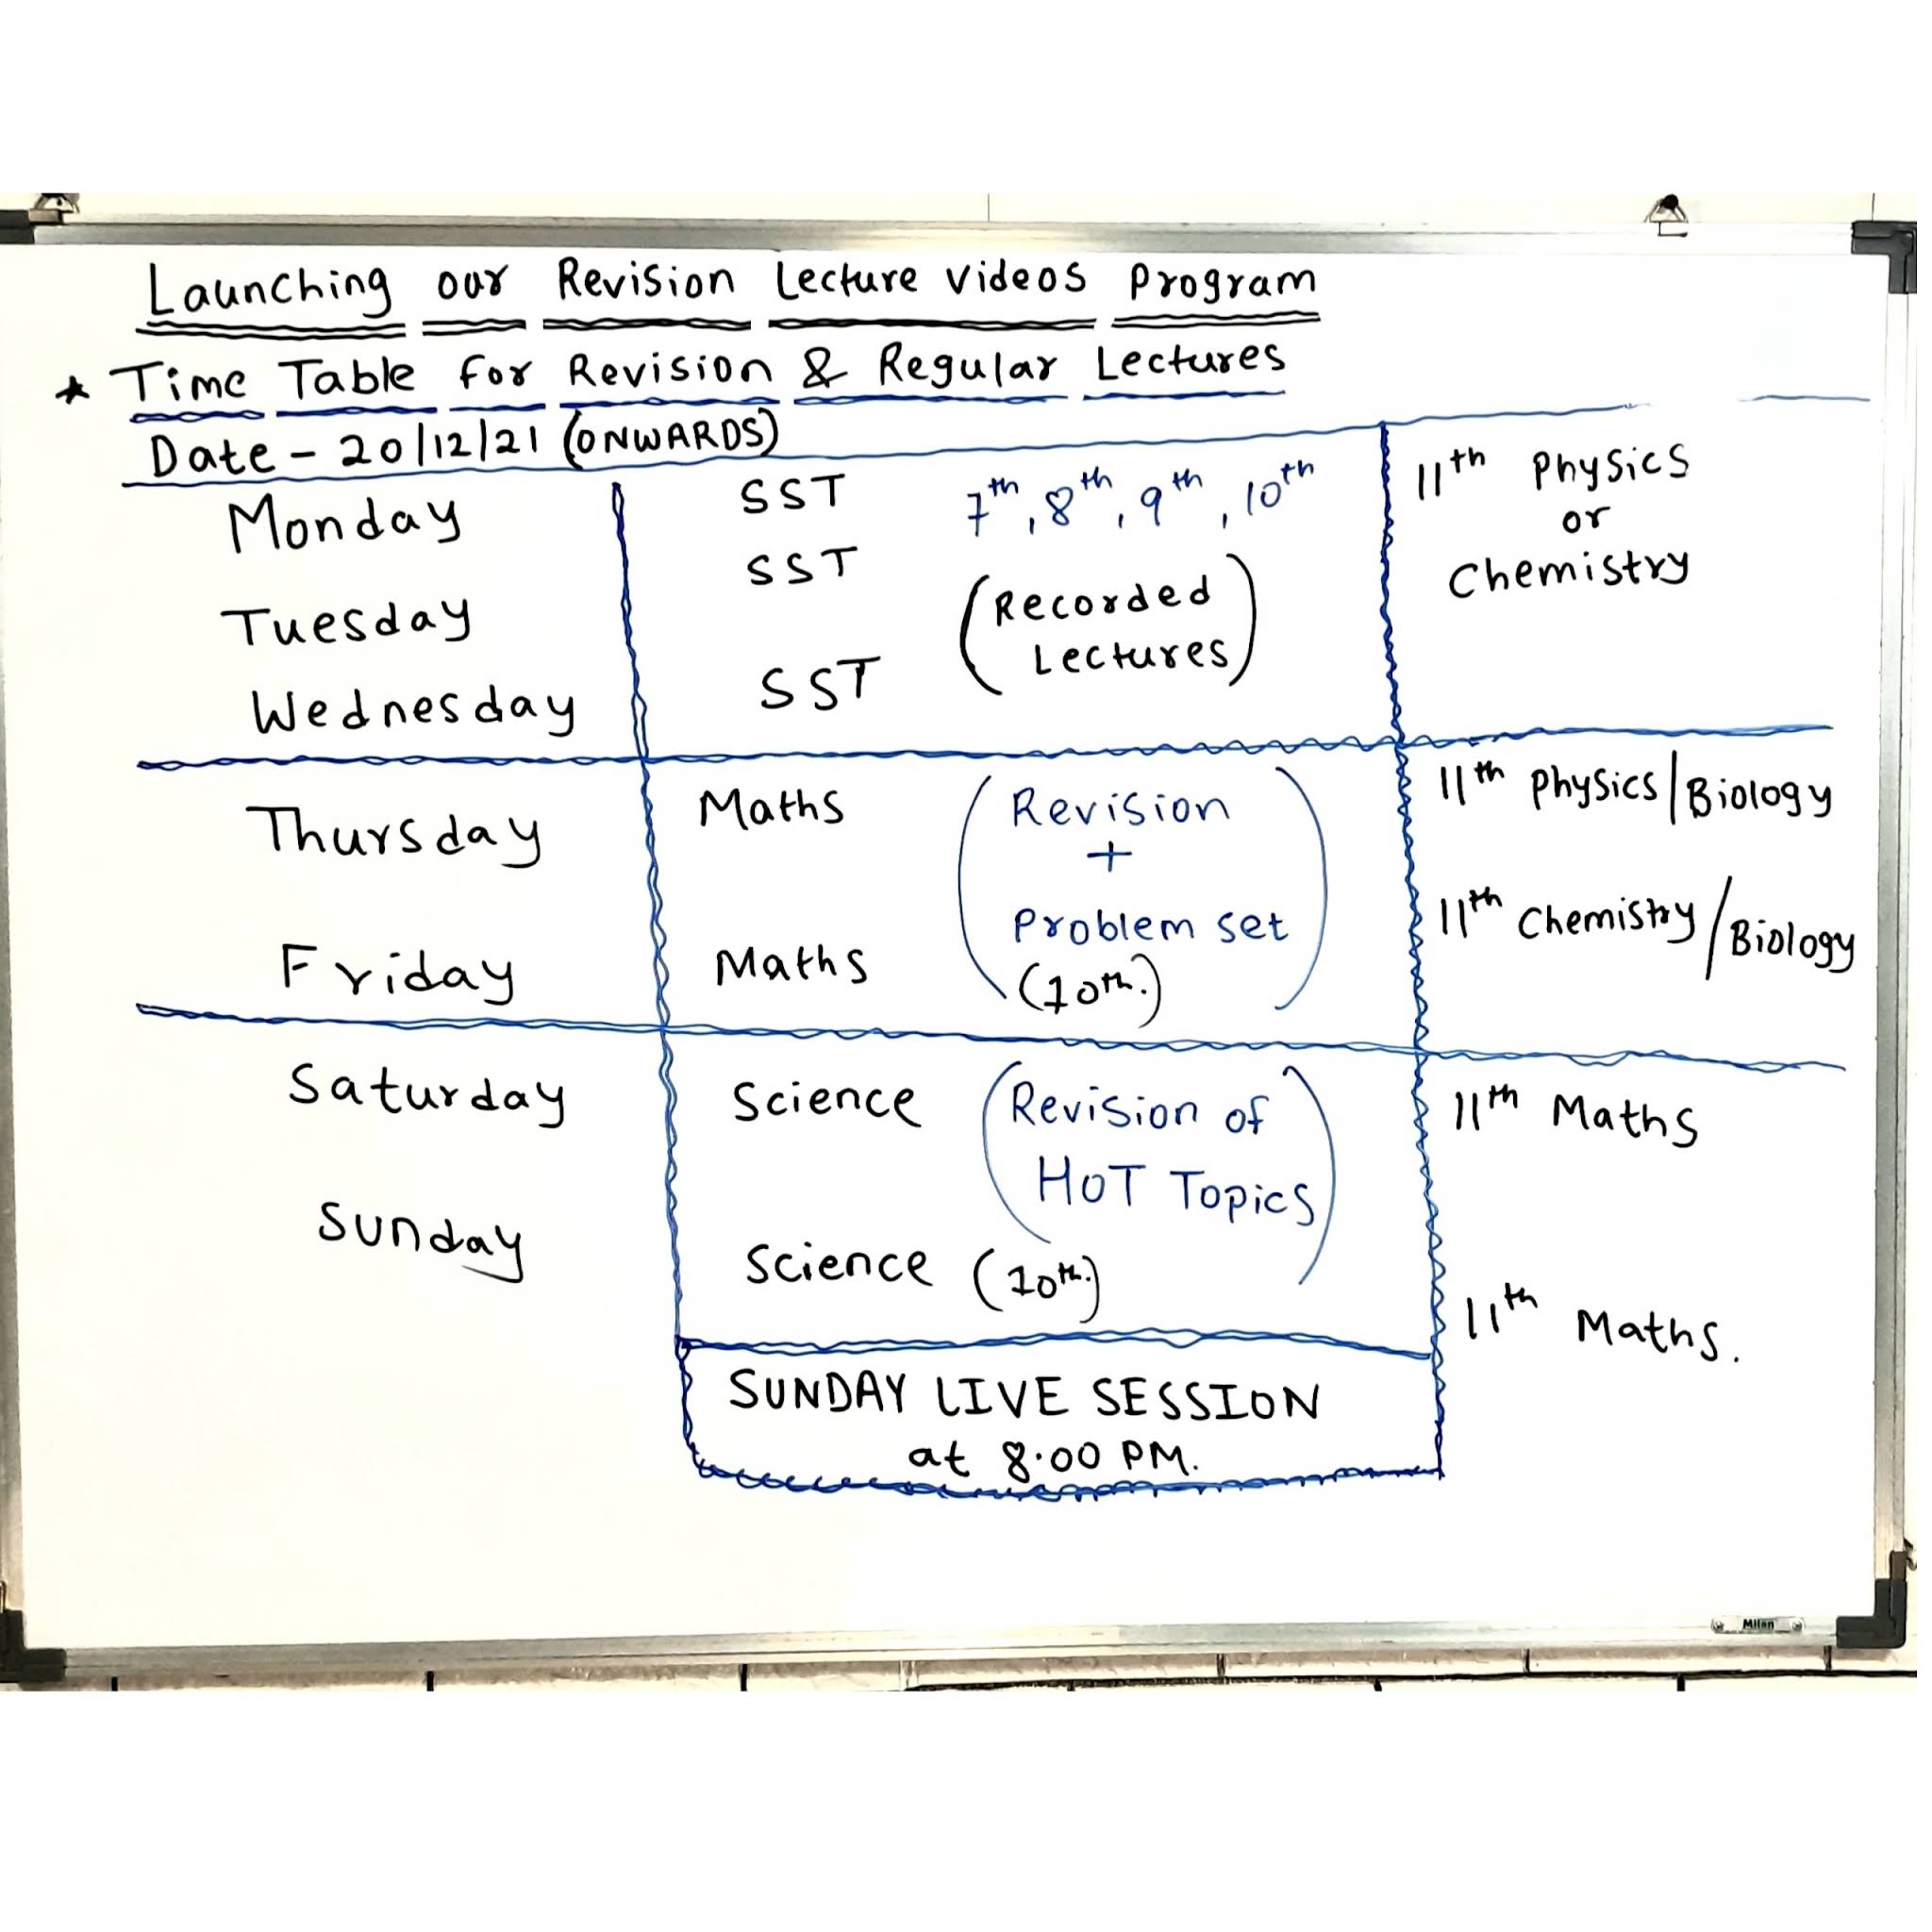 Launching our Revision Lecture videos program
* Time Table for Revision & Regular Lectures
Date - 20/12/21 (ONWARDS)
Monday
SST
7th, 8th, 9th, 10th
11th Physics
or
Chemistry
Tuesday
SST
(Recorded
Lectures)
Wednesday
SST
Thursday
Maths
(Revision
+
Problem set
(10th.))
11th Physics/Biology
Friday
Maths
11th Chemistry/Biology
Saturday
Science
(Revision of
HOT Topics)
11th Maths
Sunday
Science (10th.)
11th Maths.
SUNDAY LIVE SESSION
at 8.00 PM.
Milan